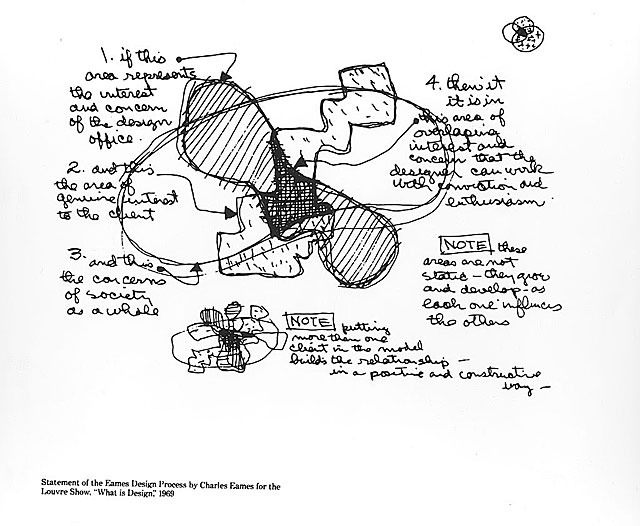 1. if this
area represents
the interest
and concern
of the design
office.
2. and this
the area of
genuine interest
to the client
3. and this
the concerns
of society
as a whole
4. then it
it is in
this area of
overlaping
interest and
concern that the
designer can work
with conviction and
enthusiasm
NOTE these
areas are not
static - they grow
and develop - as
each one influences
the others
NOTE putting
more than one
client in the model
builds the relationship -
in a positive and constructive
way -
Statement of the Eames Design Process by Charles Eames for the
Louvre Show, "What is Design," 1969